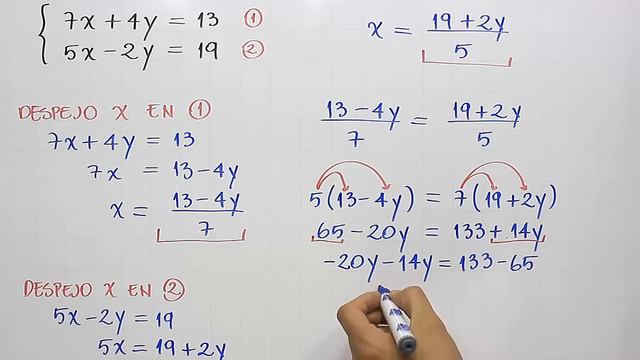 7x + 4y = 13 ①
5x - 2y = 19 ②
DESPEJO X EN ①
7x + 4y = 13
7x = 13 - 4y
x = (13 - 4y)/7
DESPEJO X EN ②
5x - 2y = 19
5x = 19 + 2y
x = (19 + 2y)/5
(13 - 4y)/7 = (19 + 2y)/5
5(13 - 4y) = 7(19 + 2y)
65 - 20y = 133 + 14y
-20y - 14y = 133 - 65